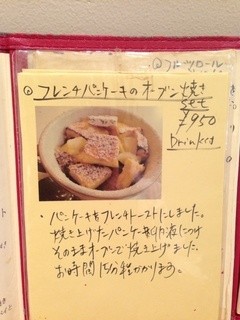 ② フルーツロール
② フレンチパンケーキのオーブン焼き
set
¥950
Drinkは
・パンケーキをフレンチトーストにしました。
焼き上げたパンケーキを卵液につけ
そのままオーブンで焼き上げました
お時間15分程かかります。